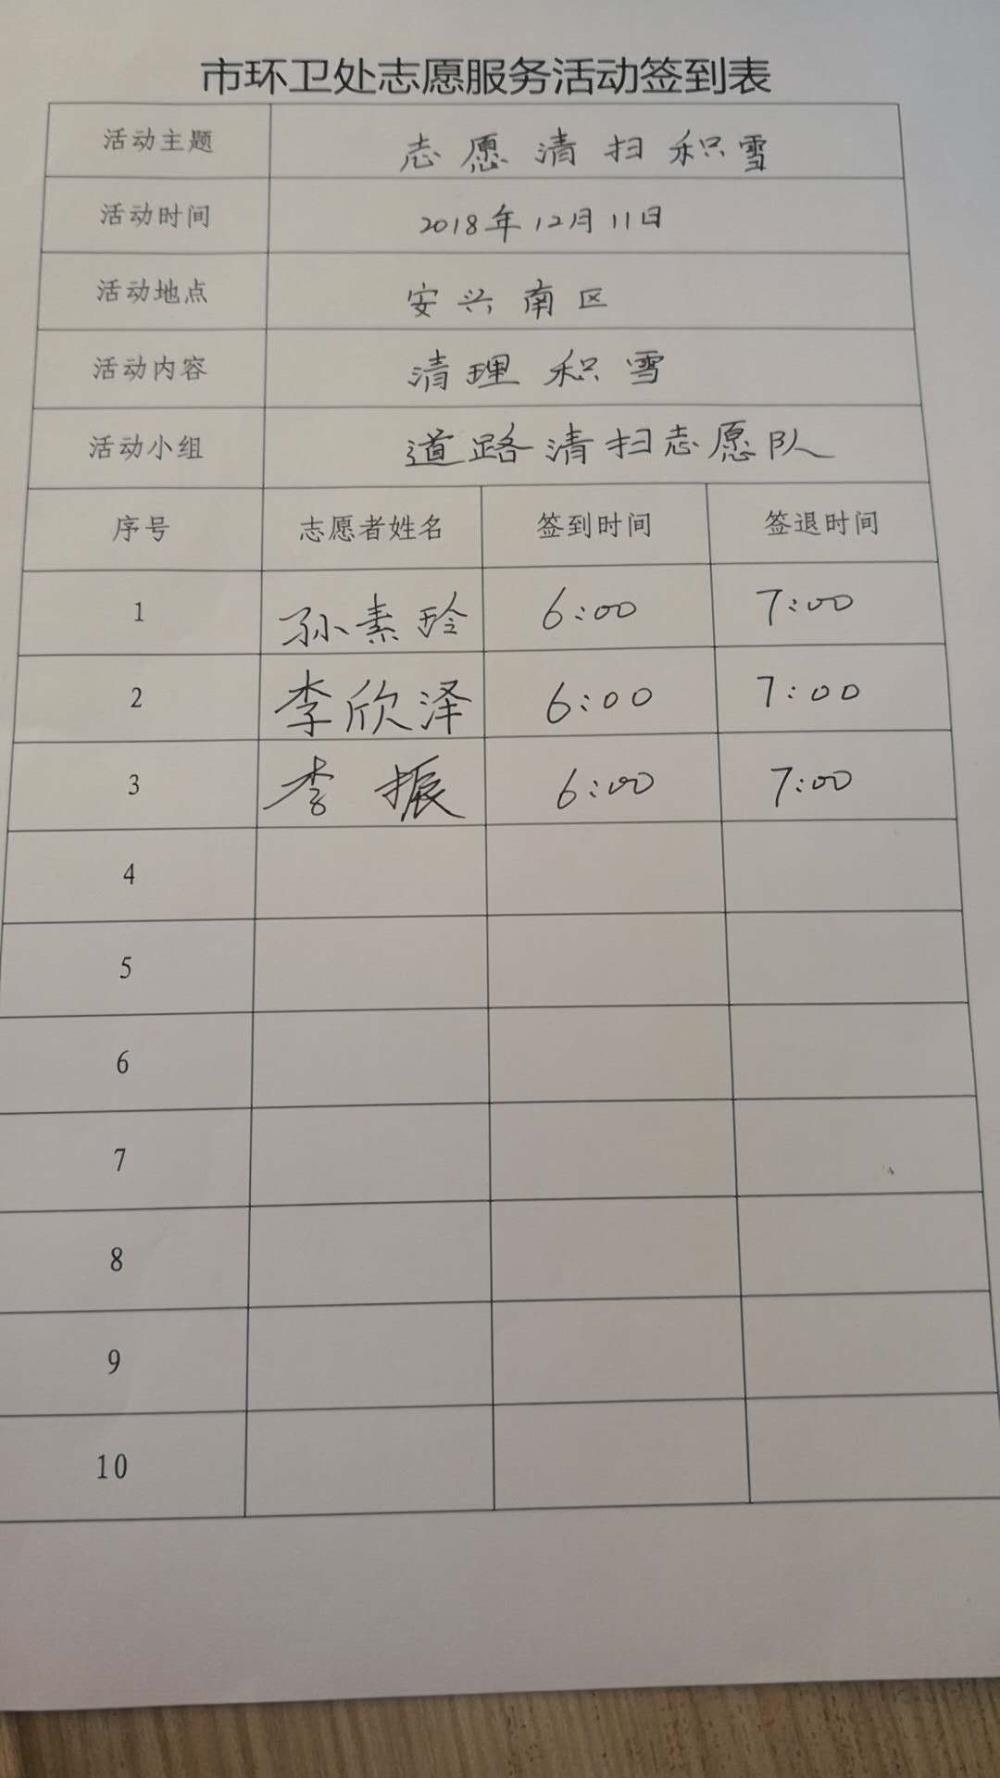 市环卫处志愿服务活动签到表
活动主题 志愿清扫积雪
活动时间 2018年12月11日
活动地点 安兴南区
活动内容 清理积雪
活动小组 道路清扫志愿队
序号 志愿者姓名 签到时间 签退时间
1 孙素玲 6:00 7:00
2 李欣泽 6:00 7:00
3 李振 6:00 7:00
4
5
6
7
8
9
10